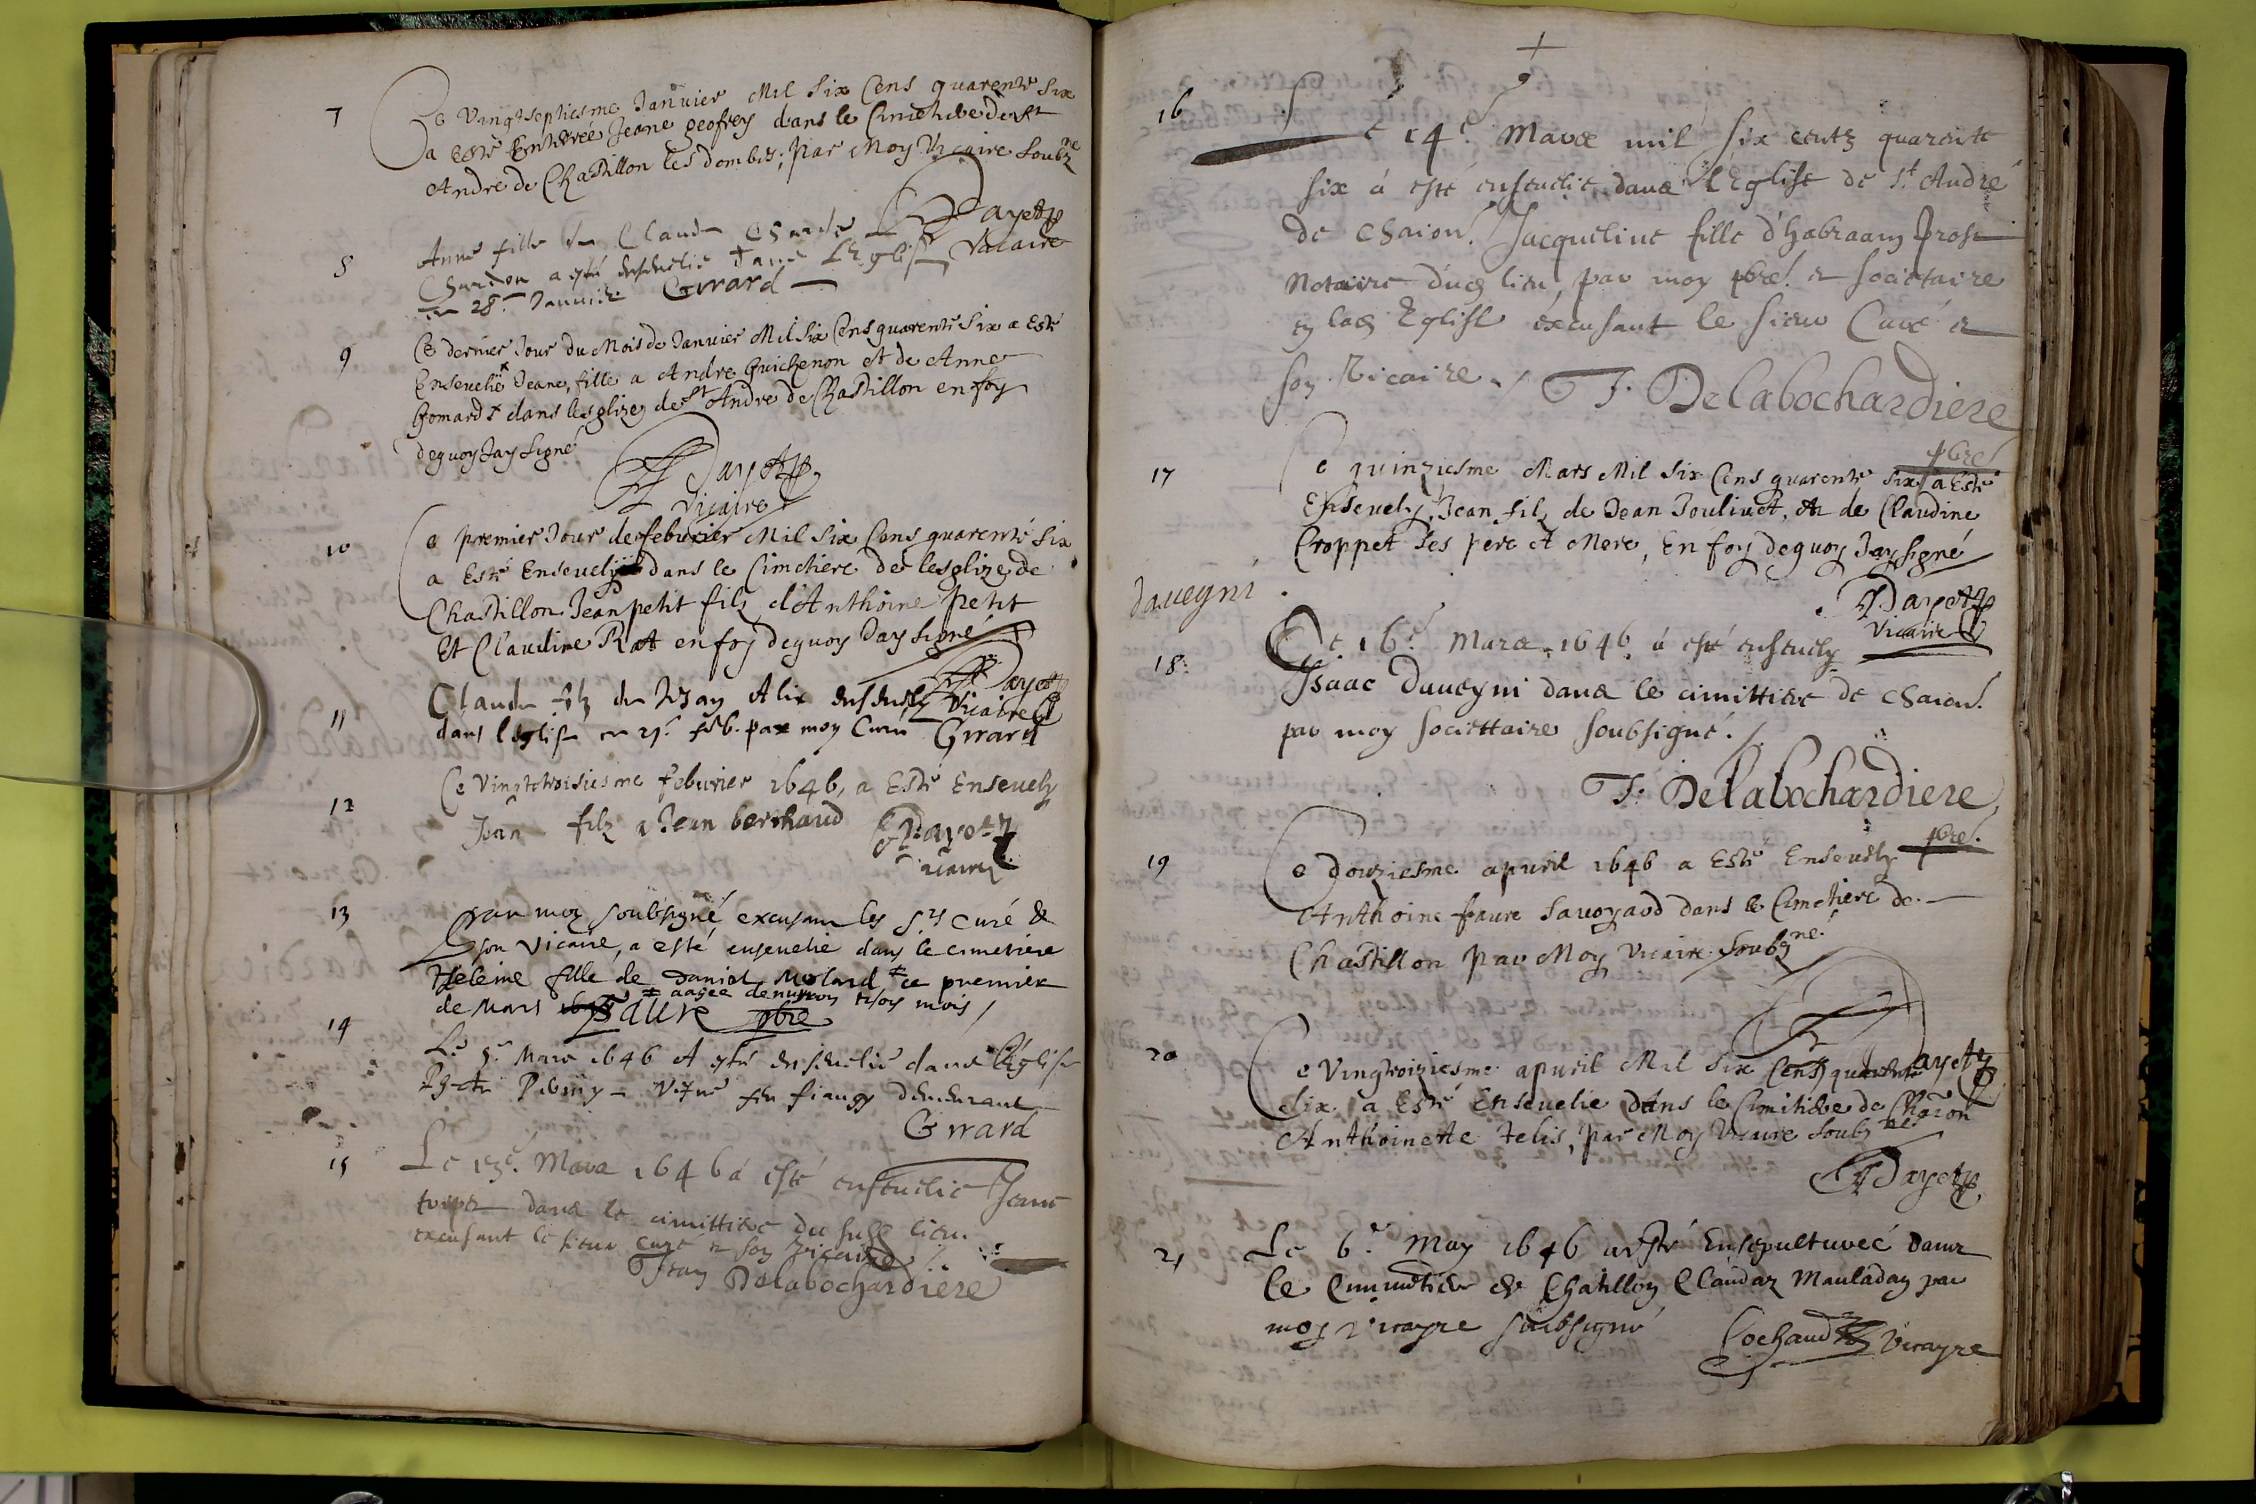 7
Ce Vingtseptiesme Janvier Mil Six Cens quarente Six
a esté Enterrée Jeane geofrey dans le Cimetiere de St
Andre de Chastillon les dombes, par Moy Vicaire Soubzne
Dayet
Vicaire
8
Anne fille de Claude
Chardon a esté ensevelie dans L'Eglise
le 28e Janvier Girard
9
Ce dernier Jour du Mois de Janvier Mil Six Cens quarente Six a Esté
Ensevelie Jeane, fille a Andre Guichenon et de Anne
Gomard dans lesglize de St Andre de Chastillon en foy
dequoy Jay Signé
Dayet
Vicaire
10
Ce premier Jour de febvrier Mil Six Cens quarente Six
a Esté Ensevely dans le Cimetiere de lesglize de
Chastillon Jean petit filz d'Anthoine Petit
Et Claudine Rat en foy dequoy Jay Signé
Dayet
Vicaire
11
Claude filz de Alix ensevely
dans l'eglise le 21e feb. par moy Curé Girard
12
Ce Vingtroisiesme febvrier 1646, a Esté Ensevely
Jean filz a Jean berthaud
Dayet
Vicaire
13
Par moy soubsigné excusant les Srs Curé &
son Vicaire, a esté ensevelie dans le cimetiere
Heleine fille de Daniel Molard ce premier
aagée denviron trois mois
de Mars Faure pbre
14
Le 5e Mars 1646 A esté ensevelie dans l'Eglise
demeurant
Girard
15
Le 13e Mars 1646 á esté ensevelie Jeane
dans le cimittiere du lieu
excusant le sieur curé et son Vicaire
Jean Delabochardiere
9
16
Le 14e Mars mil six centz quarente
six á esté ensevelie dans l'Eglise de St André
de Chaion. Jacqueline fille d'habraam Prost
Notaire lieu, par moy pbre et societaire
en Eglise excusant le sieur Curé et
son Vicaire J. Delabochardiere
pbre
17
Ce quinziesme Mars Mil Six Cens quarente six a Esté
Ensevely, Jean filz de Jean Joulivet, et de Claudine
Croppet Ses pere et Mere, En foy dequoy Jay Signé
Dayet
Vicaire
daveyni
18
Ce 16e Mars 1646 á esté ensevely
Isaac Daveyni dans le cimittiere de Chaion
par moy societtaire soubsigné
J. Delabochardiere
pbre
19
Ce Douziesme apvril 1646 a Esté Ensevely
Anthoine faure Savoyard dans le Cimetiere de
Chastillon par Moy Vicaire Soubzne
Dayet
20
Ce Vingtroiziesme apvril Mil Six Cens quarente
Six a Esté Ensevelie dans le Cimitiere de Chaion
Anthoinette Jelis, par Moy Vicaire Soubzne
Dayet
21
Le 6e May 1646 a esté Ensepulturée dans
le Cimmetiere de Chatillon Claudaz Mauladaz par
moy Vicayre soubsigné Cochaud Vicayre